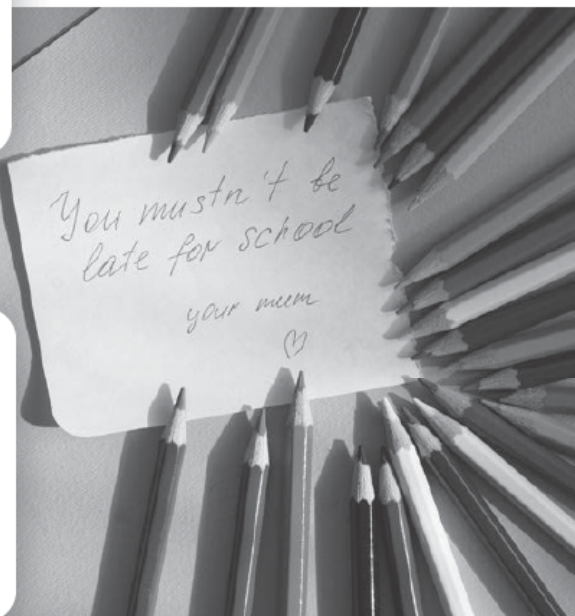 You mustn't be
late for school
your mum